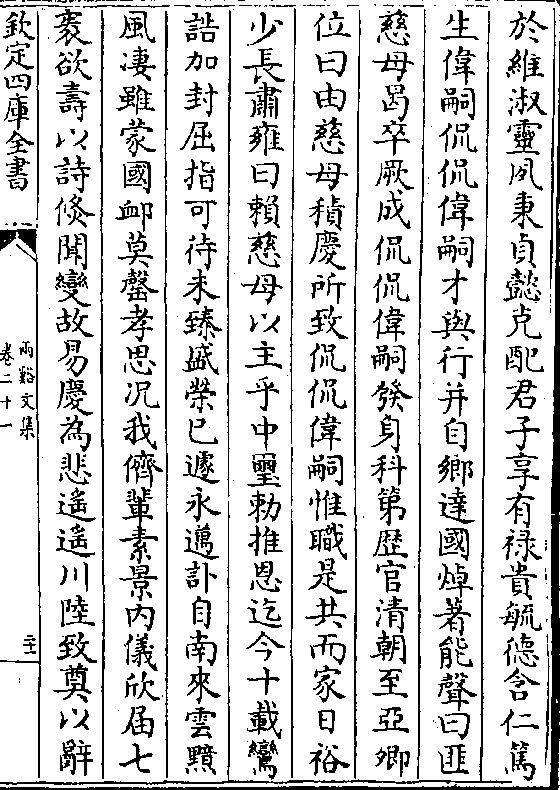 於維淑靈夙秉貞懿克配君子享有祿貴毓德含仁篤
生偉嗣侃侃偉嗣才與行并自鄉達國焯著能聲曰匪
慈母曷卒厥成侃侃偉嗣發身科第歴官清朝至亞卿
位曰由慈母積慶所致侃侃偉嗣惟職是共而家日裕
少長肅雍曰賴慈母以主乎中璽勅推恩迄今十載鸞
誥加封屈指可待未臻盛榮已遽永邁訃自南來雲黯
風凄雖蒙國䘏莫罄孝思况我儕輩素景内儀欣届七
袠欲壽以詩倐聞變故易慶為悲遙遙川陸致奠以辭
欽定四庫全書
兩谿文集
卷二十一
二十一